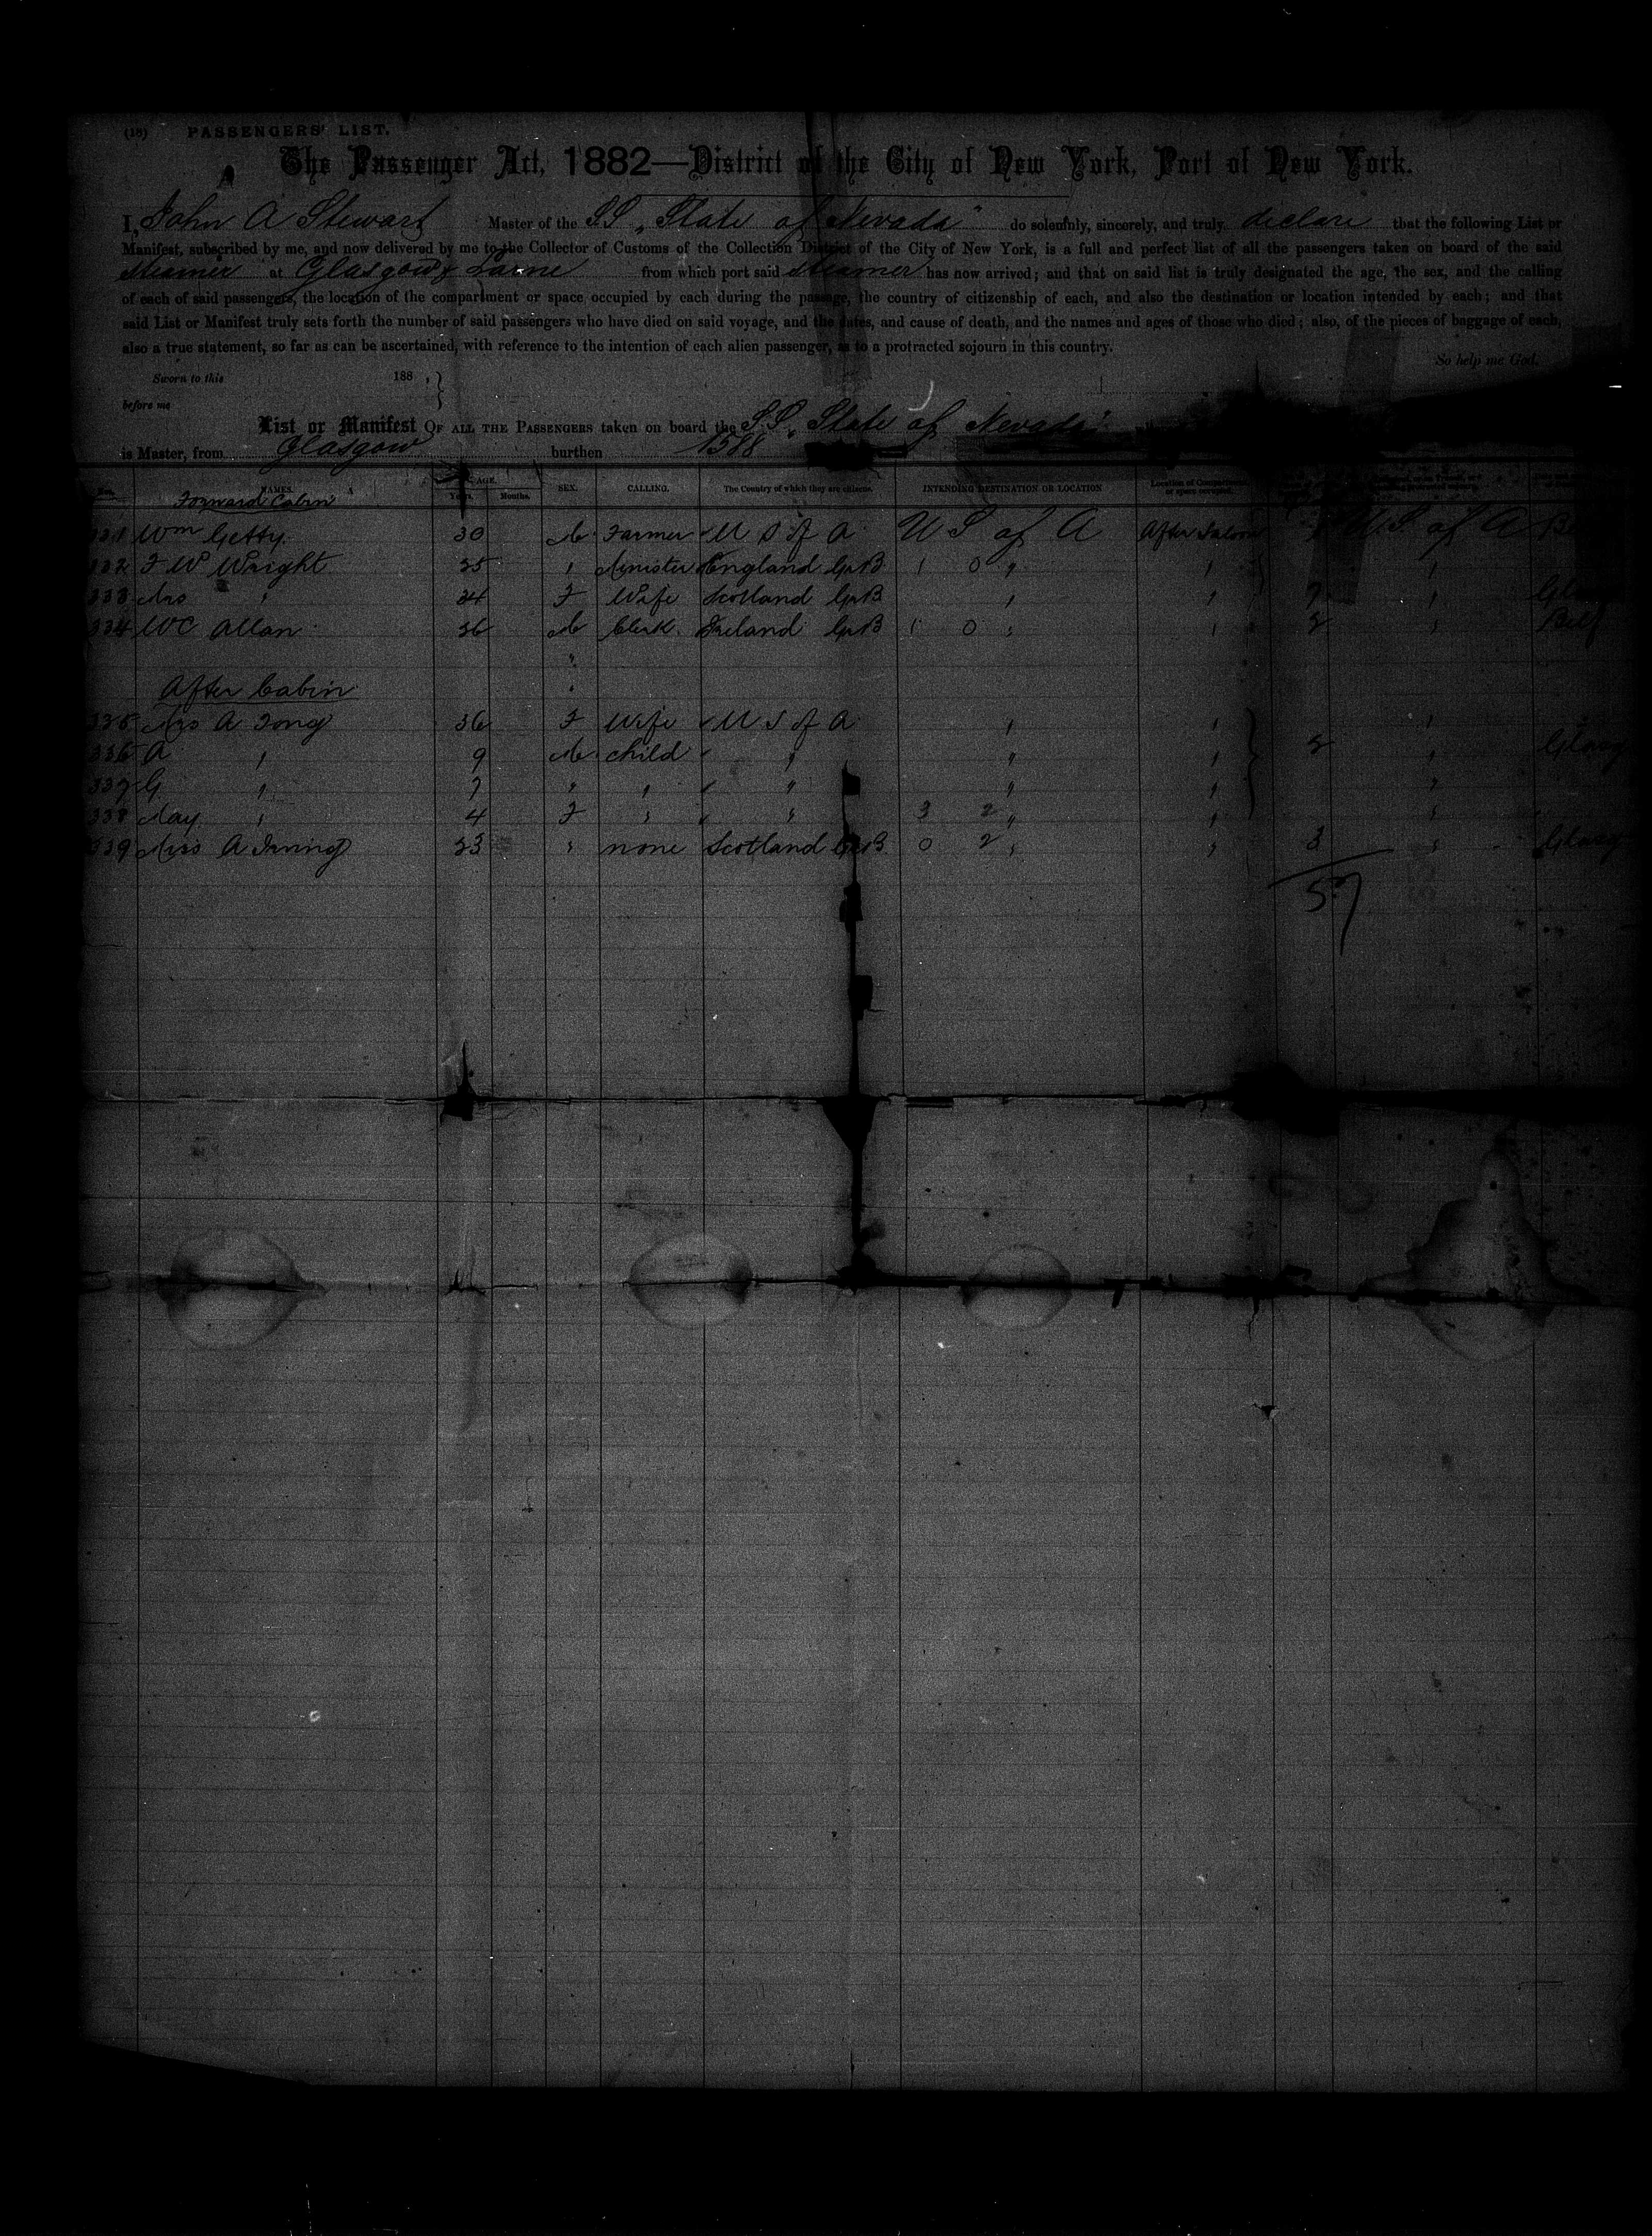 (18) PASSENGERS' LIST.
The Passenger Act, 1882—District of the City of New York, Port of New York.
I, John A Stewart Master of the SS "State of Nevada" do solemnly, sincerely, and truly declare that the following List or
Manifest, subscribed by me, and now delivered by me to the Collector of Customs of the Collection District of the City of New York, is a full and perfect list of all the passengers taken on board of the said
Steamer at Glasgow & Larne from which port said Steamer has now arrived; and that on said list is truly designated the age, the sex, and the calling
of each of said passengers, the location of the compartment or space occupied by each during the passage, the country of citizenship of each, and also the destination or location intended by each; and that
said List or Manifest truly sets forth the number of said passengers who have died on said voyage, and the dates, and cause of death, and the names and ages of those who died; also, of the pieces of baggage of each,
also a true statement, so far as can be ascertained, with reference to the intention of each alien passenger, as to a protracted sojourn in this country.
So help me God.
Sworn to this 188 ,
before me
List or Manifest OF ALL THE PASSENGERS taken on board the S.S. "State of Nevada"
is Master, from Glasgow burthen 1588
NAMES. AGE. Years. Months. SEX. CALLING. The Country of which they are citizens. INTENDING DESTINATION OR LOCATION Location of Compartment or space occupied.
Forward Cabin
331 Wm Getty 30 M Farmer U S of A U S of A After Saloon U.S. of A
332 F W Wright 25 " Minister England GrB 1 0 " " "
333 Mrs " 24 F Wife Scotland GrB " " "
334 WC Allan 26 M Clerk Ireland GrB 1 0 " " 2 " Belf
After Cabin
335 Mrs A Tong 36 F Wife U S of A " " "
336 A " 9 M child " " " 2 " Glasg
337 G " 7 " " " " " "
338 May " 4 F " " 3 2 " " "
339 Miss A Irving 23 " none Scotland GrB 0 2 " " 3 " Glasg
57